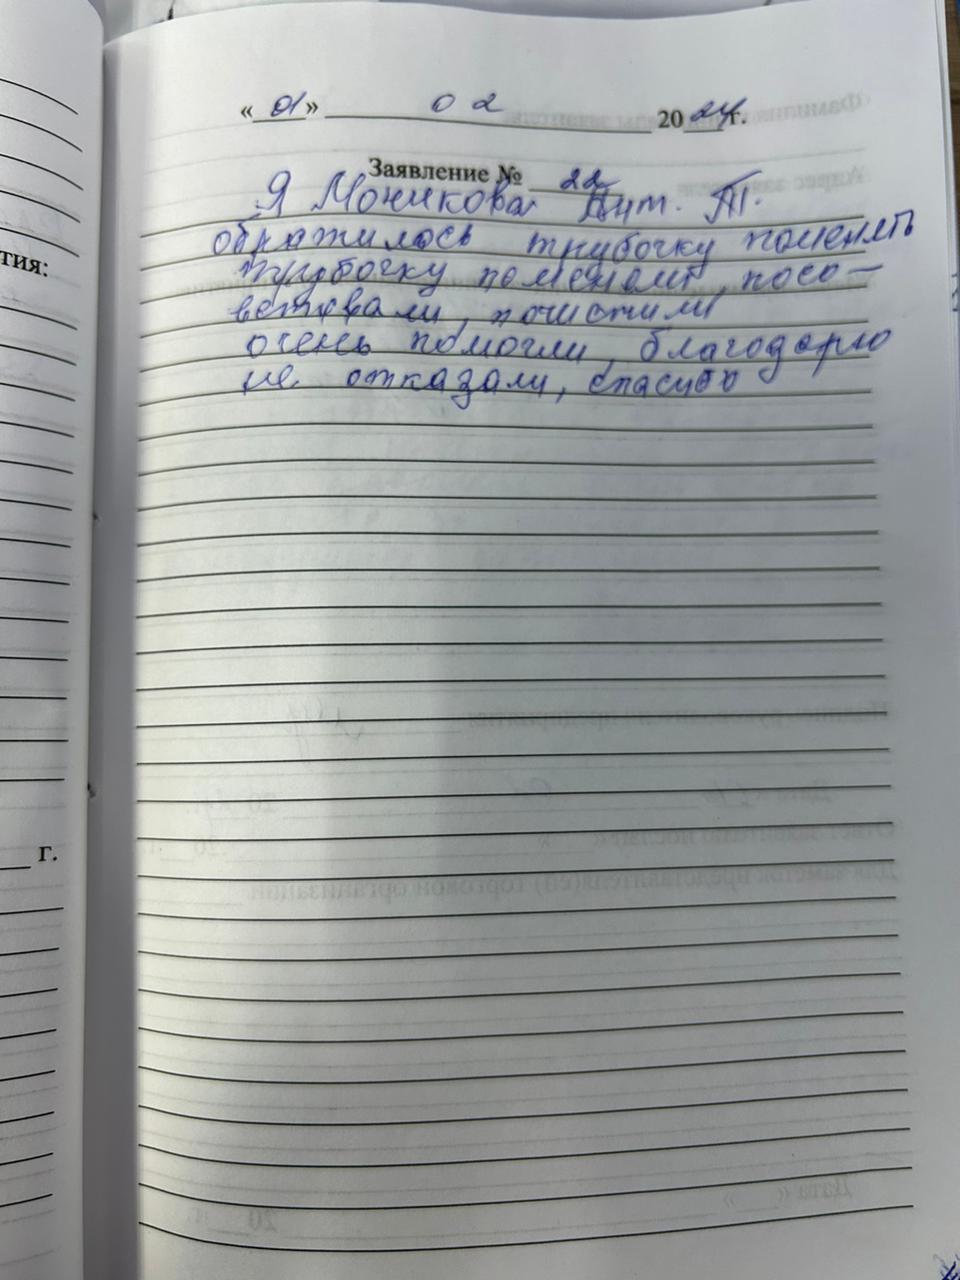 «01» 02 2024г.
Заявление № 22
Я Моникова Ант. Т.
обратилось трубочку поменять
трубочку поменяли, посо-
ветовали, почистили
очень помогли, благодарю
не отказали, спасибо
тия:
г.